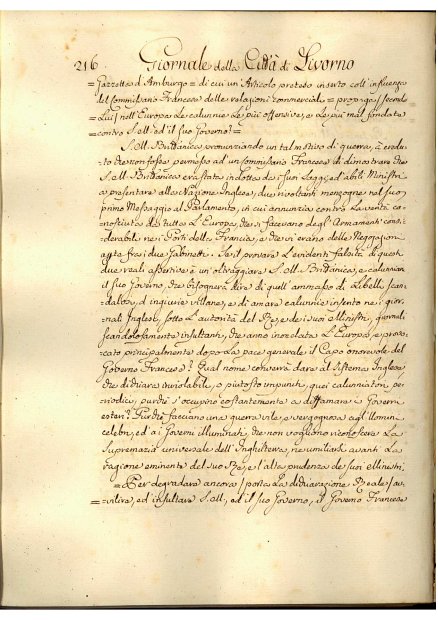 216. Giornale della Città di Livorno
= Gazzetta d'Amburgo = di cui un Articolo preteso inserto coll'influenza
del Commissario Francese delle relazioni commerciali = propaga (secondo
Lui) nell'Europa le calunnie le più offensive, e le più mal fondate
= contro S. M. ed il suo Governo! =
S. M. Britannica pronunziando un tal motivo di guerra, à creduto
che non fosse permesso ad un Commissario Francese di dimostrare che
S. M. Britannica era stata indotta da' suoi Saggi, ed abili Ministri
a presentare alla Nazione Inglese, due rivoltanti menzogne nel suo
primo Messaggio al Parlamento, in cui annunzia contro la verità co-
nosciuta da tutta l'Europa, che si facevano degl'Armamenti consi-
derabili nei Porti della Francia, e che vi erano delle Negoziazioni
fra i due Gabinetti. Se il provare l'evidente falsità di queste
due reali assertive è un'oltraggiare S. M. Britannica, e calunniare
il suo Governo, che bisognerà dire di quell'ammasso di Libelli scan-
dalosi, d'ingiurie villane, e di amare calunnie inserito nei gior-
nali Inglesi sotto l'autorità del Re, e de' suoi Ministri, giornali
scandolosamente insultanti, che anno inondata l'Europa e provo-
cato principalmente dopo la pace generale il Capo onorevole del
Governo Francese? Qual nome converrà dare al Sistema Inglese
che dichiara inviolabili, o piutosto impuniti, quei calunniatori pe-
riodici, purchè s'occupino costantemente a diffamare i Governi
esteri? Purchè facciano una guerra vile, e vergognosa agl'Uomini
celebri, ed ai Governi illuminati, che non vogliono riconoscere la
Supremazia universale dell'Inghilterra, ne umiliarsi avanti la
ragione eminente del suo Re, e l'alta prudenza de suoi Ministri.
= Per degradare ancora (porta la dichiarazione Reale) av-
= vilire, ed insultare S. M., ed il suo Governo, il Governo Francese